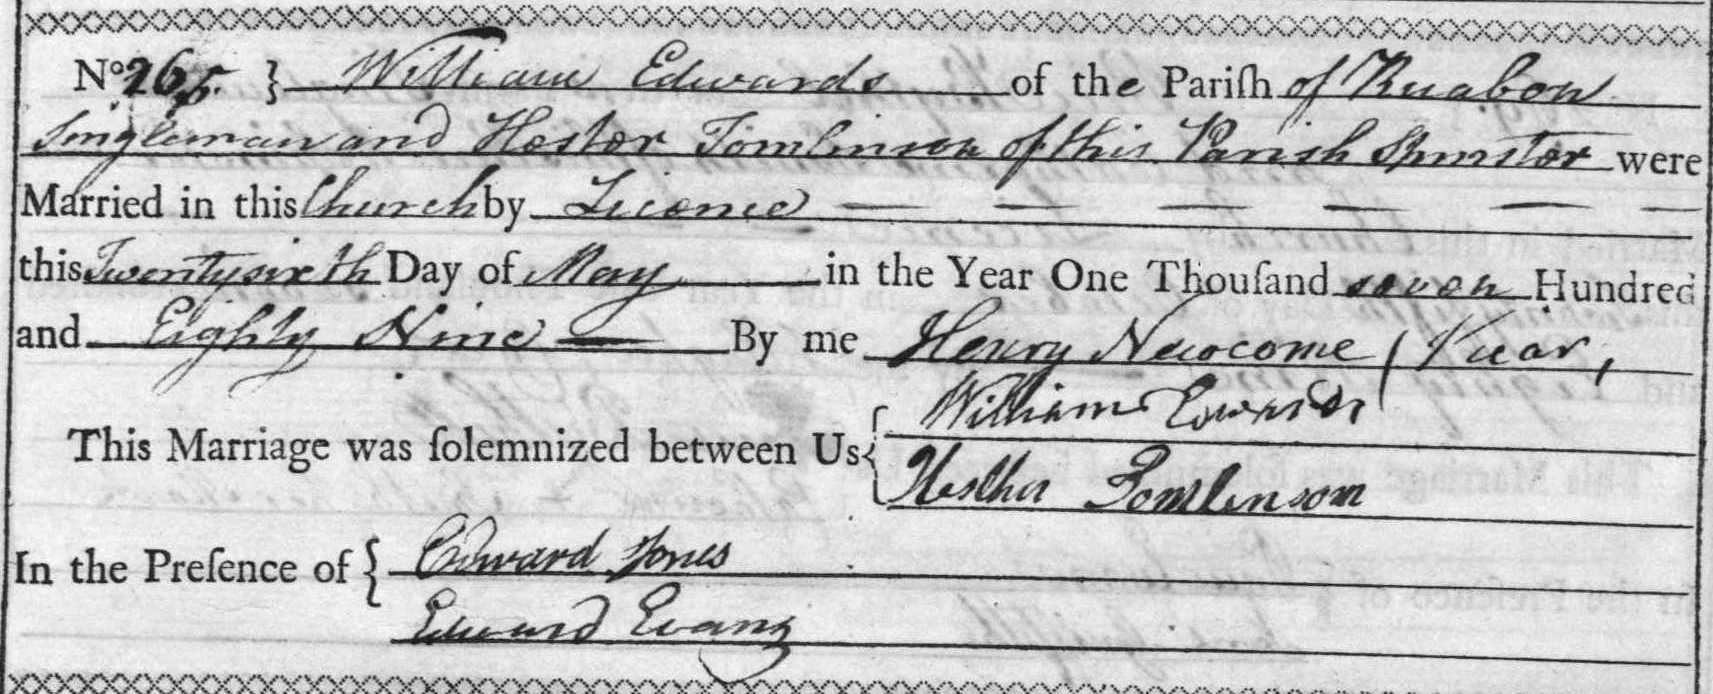 No 265 } William Edwards of the Pariſh of Ruabon
Singleman and Hester Tomlinson of this Parish Spinster were
Married in this Church by Licence — — — — — —
this Twentysixth Day of May in the Year One Thouſand seven Hundred
and Eighty Nine — By me Henry Newcome / Vicar,
This Marriage was ſolemnized between Us { William Edwards
Hesther Tomlinsom
In the Preſence of { Edward Jones
Edward Evans